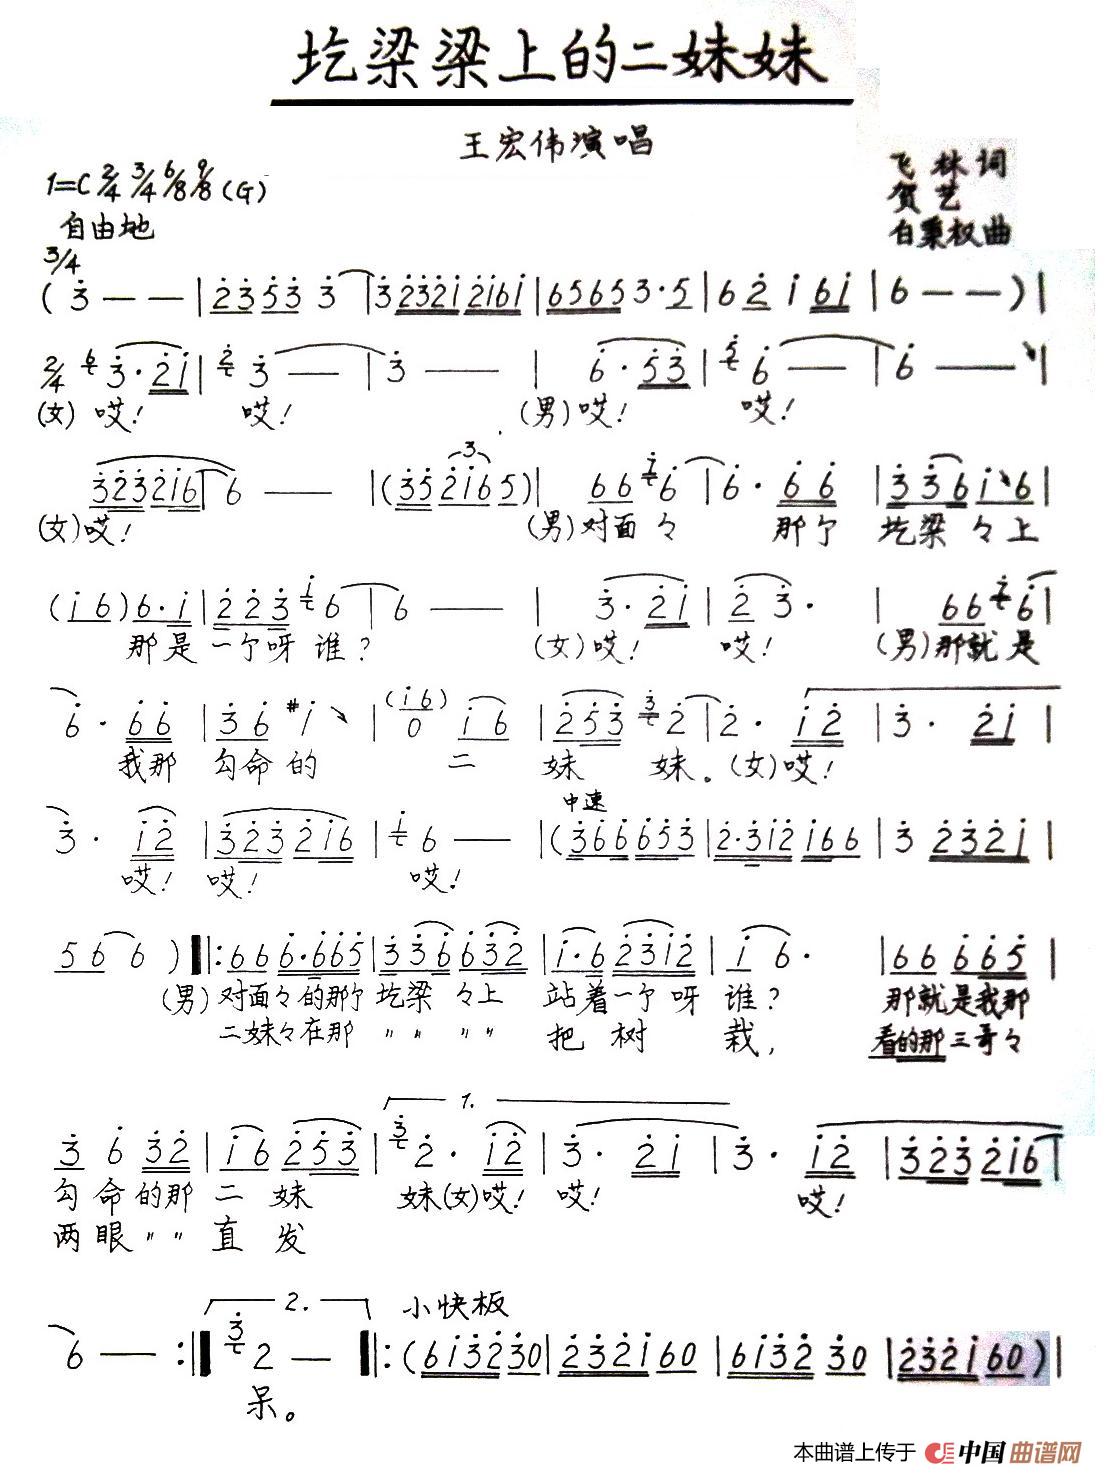 圪梁梁上的二妹妹
王宏伟演唱
1=C 2/4 3/4 6/8 9/8 (G)
飞林词
贺艺
白秉权曲
自由地
3/4
(3 — — | 2353 3 | 3 2321 2161 | 65653·5 | 6 2 1 61 | 6 — — ) |
2/4 6 3·21 | 2 3 — | 3 — | 6·53 | 5 6 — | 6 — |
(女) 哎! 哎! (男) 哎! 哎!
323216 | 6 — | (35 2165) | 66 1 6 | 6·66 | 336 16 |
(女) 哎! (男) 对面々 那个 圪梁々上
(16) 6·1 | 223 1 6 | 6 — | 3·21 | 2 3· | 66 2 6 |
那是一个呀谁? (女) 哎! 哎! (男) 那就是
6·66 | 36 #1 | (16) 0 16 | 253 3 2 | 2·12 | 3·21 |
我那 勾命的 二 妹 妹。(女) 哎!
中速
3· 12 | 323 216 | 1 6 — | (366 653 | 2·312 166 | 3 2321 |
哎! 哎! 哎!
56 6 ) |: 66 6·665 | 336 632 | 1·6 2312 | 1 6· | 66 665 |
(男) 对面々的那个圪梁々上 站着一个呀谁? 那就是我那
二妹々在那 〃 〃 〃 〃 把树 栽, 看的那三哥々
1.
3 6 32 | 16 253 | 3 2· 12 | 3· 21 | 3· 12 | 323 216 |
勾命的那二妹 妹(女)哎! 哎! 哎!
两眼〃〃直发
2. 小快板
6 — :| 3 2 — |: (613230 | 232160 | 6132 30 | 232160) |
呆。
本曲谱上传于 中国曲谱网